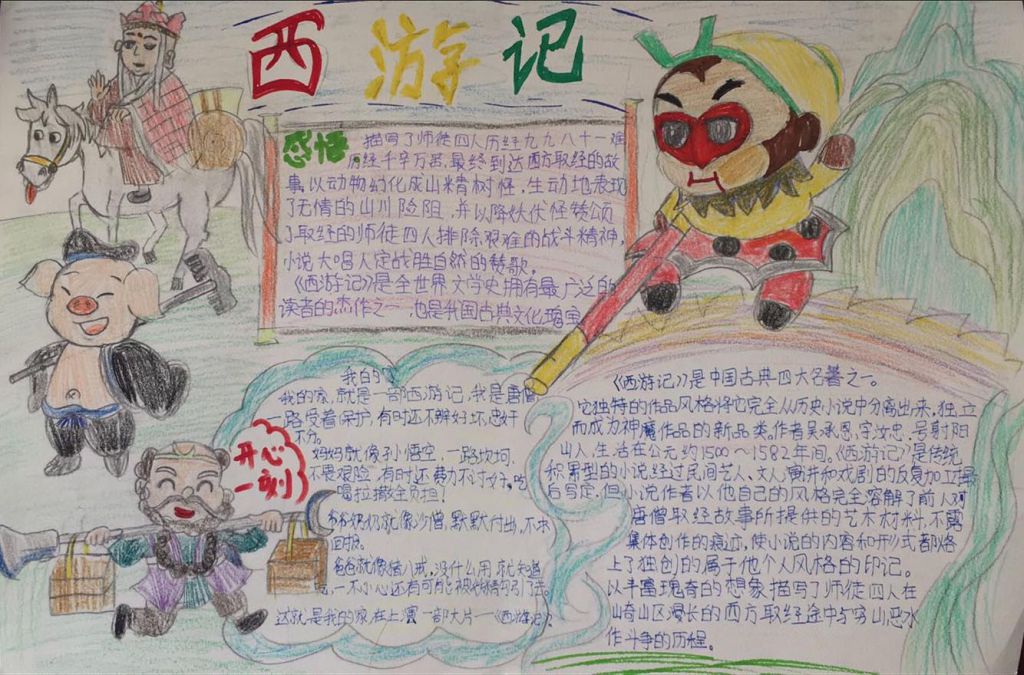 西游记
感悟
描写了师徒四人历经九九八十一难
历经千辛万苦,最终到达西方取经的故
事,以动物幻化成山精树怪,生动地表现
了无情的山川险阻,并以降妖伏怪赞颂
了取经的师徒四人排除艰难的战斗精神,
小说大唱人定战胜自然的赞歌。
《西游记》是全世界文学史拥有最广泛的
读者的杰作之一,也是我国古典文化瑰宝
我的
我的家,就是一部西游记,我是唐僧
一路受着保护,有时还不辨好坏,忠奸
不分。
妈妈就像孙小悟空,一路坎坷,
不畏艰险,有时还费力不讨好。吃
喝拉撒全负担!
爷爷奶奶就像沙僧,默默付出,不求
回报。
爸爸就像猪八戒,没什么用,就知道
一不小心还有可能被妖精勾引了去。
这就是我的家在上演一部大片一《西游记》
开心
一刻
《西游记》是中国古典四大名著之一。
它独特的作品风格将它完全从历史小说中分离出来,独立
而成为神魔作品的新品类,作者吴承恩,字汝忠,号射阳
山人,生活在公元约1500~1582年间,《西游记》是传统
积累型的小说,经过民间艺人、文人、演讲和戏剧的反复加工最
后写定,但小说作者以他自己的风格完全溶解了前人对
唐僧取经故事所提供的艺术材料,不露
集体创作的痕迹,使小说的内容和形式都烙
上了独创的属于他个人风格的印记。
以丰富瑰奇的想象描写了师徒四人在
山奇山区漫长的西方取经途中与穷山恶水
作斗争的历程。